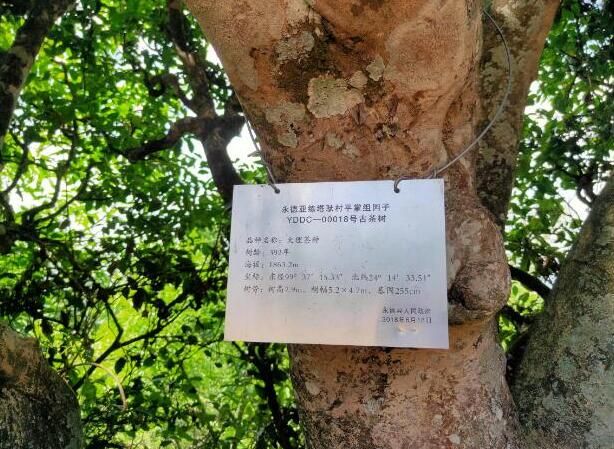 永德亚练塔驮村平掌组茴子
YDDC—00018号古茶树
品种名称：大理茶种
树龄：392年
海拔：1863.2m
坐标：东经99° 37′ 15.33″ 北纬24° 14′ 33.51″
树势：树高7.9m、树幅5.2×4.7m、基围255cm
永德县人民政府
2018年6月18日